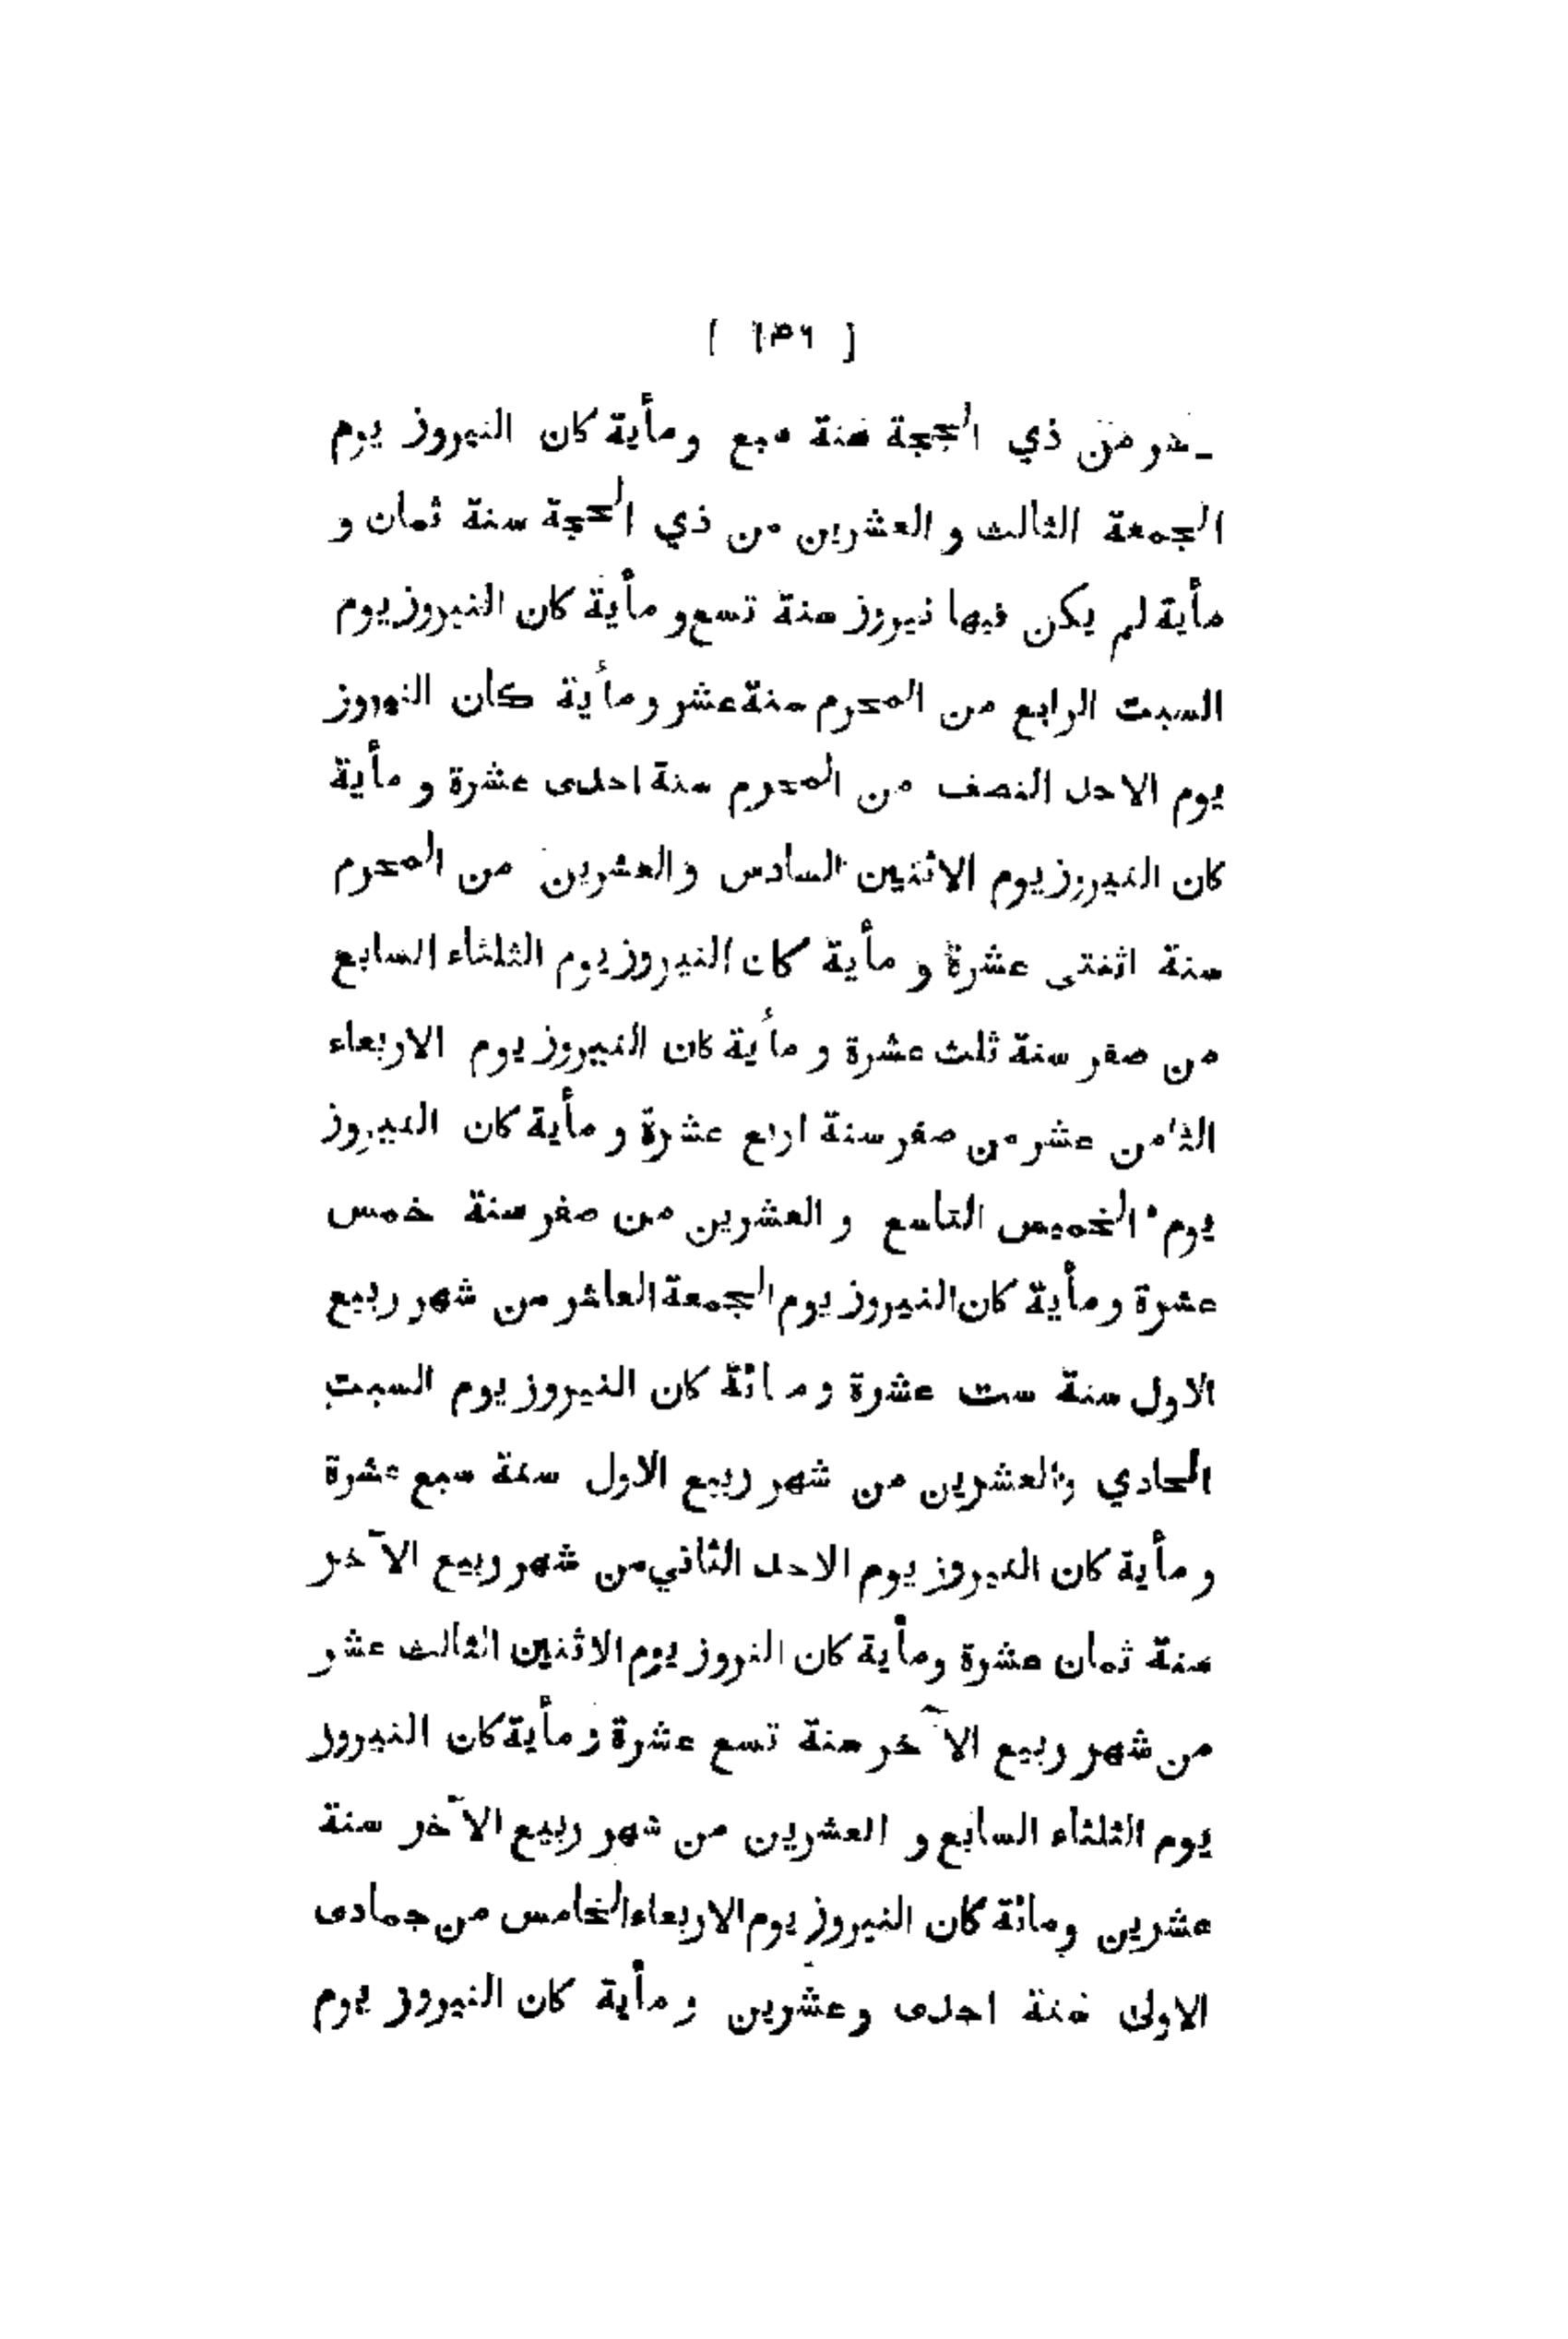 [ ١٣٦ ]
من ذي الحجة سنة سبع ومأية كان النيروز يوم
الجمعة الثالث و العشرين من ذي الحجة سنة ثمان و
مأية لم يكن فيها نيروز سنة تسع و مأية كان النيروز يوم
السبت الرابع من المحرم سنة عشر و مأية كان النوروز
يوم الاحد النصف من المحرم سنة احدى عشرة و مأية
كان النيروز يوم الاثنين السادس والعشرين من المحرم
سنة اثنتى عشرة و مأية كان النيروز يوم الثلثاء السابع
من صفر سنة ثلث عشرة و مأية كان النيروز يوم الاربعاء
الثامن عشر من صفر سنة اربع عشرة و مأية كان النيروز
يوم الخميس التاسع و العشرين من صفر سنة خمس
عشرة و مأية كان النيروز يوم الجمعة العاشر من شهر ربيع
الاول سنة ست عشرة و مائة كان النيروز يوم السبت
الحادي والعشرين من شهر ربيع الاول سنة سبع عشرة
و مأية كان النيروز يوم الاحد الثاني من شهر ربيع الآخر
سنة ثمان عشرة ومأية كان النروز يوم الاثنين الثالث عشر
من شهر ربيع الآخر سنة تسع عشرة و مأية كان النيروز
يوم الثلثاء السابع و العشرين من شهر ربيع الآخر سنة
عشرين ومائة كان النيروز يوم الاربعاء الخامس من جمادى
الاولى سنة احدى وعشرين و مأية كان النيروز يوم